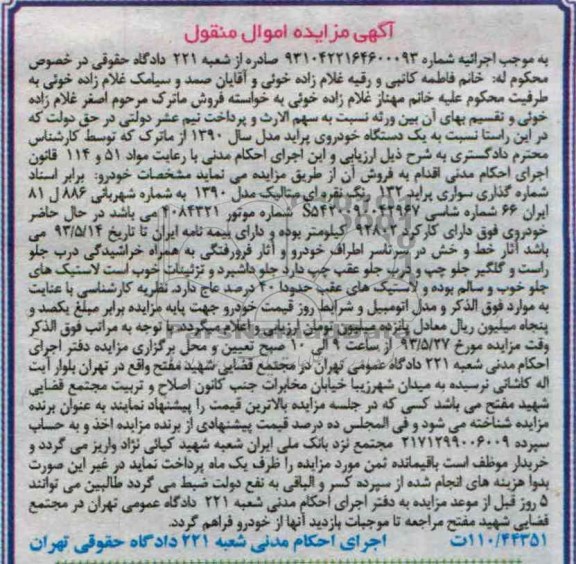 آگهی مزایده اموال منقول
به موجب اجرائیه شماره ۹۳۱۰۴۲۲۱۶۴۶۰۰۰۹۳ صادره از شعبه ۲۲۱ دادگاه حقوقی در خصوص
محکوم له: خانم فاطمه کاتبی و رقیه غلام زاده خوئی و آقایان صمد و سیامک غلام زاده خوئی به
طرفیت محکوم علیه خانم مهناز غلام زاده خوئی به خواسته فروش ماترک مرحوم اصغر غلام زاده
خوئی و تقسیم بهای آن بین ورثه نسبت به سهم الارث و پرداخت نیم عشر دولتی در حق دولت که
در این راستا نسبت به یک دستگاه خودروی پراید مدل سال ۱۳۹۰ از ماترک که توسط کارشناس
محترم دادگستری به شرح ذیل ارزیابی و این اجرای احکام مدنی با رعایت مواد ۵۱ و ۱۱۴ قانون
اجرای احکام مدنی اقدام به فروش آن از طریق مزایده می نماید مشخصات خودرو: برابر اسناد
شماره گذاری سواری پراید ۱۳۲ رنگ نقره ای متالیک مدل ۱۳۹۰ به شماره شهربانی ۸۸۶ ل ۸۱
ایران ۶۶ شماره شاسی شماره موتور ۴۰۸۴۳۲۱ می باشد در حال حاضر
خودروی فوق دارای کارکرد ۹۲۸۰۳ کیلومتر بوده و دارای بیمه نامه ایران تا تاریخ ۹۳/۵/۱۴ می
باشد آثار خط و خش در سرتاسر اطراف خودرو و آثار فرورفتگی به همراه خراشیدگی درب جلو
راست و گلگیر جلو چپ و درب جلو عقب چپ دارد جلو داشبرد و تزئینات خوب است لاستیک های
جلو خوب و سالم بوده و لاستیک های عقب حدودا ۴۰ درصد عاج دارد. نظریه کارشناسی با عنایت
به موارد فوق الذکر و مدل اتومبیل و شرایط روز قیمت خودرو جهت پایه مزایده برابر مبلغ یکصد و
پنجاه میلیون ریال معادل پانزده میلیون تومان ارزیابی و اعلام میگردد. با توجه به مراتب فوق الذکر
وقت مزایده مورخ ۹۳/۵/۲۷ از ساعت ۹ الی ۱۰ صبح تعیین و محل برگزاری مزایده دفتر اجرای
احکام مدنی شعبه ۲۲۱ دادگاه عمومی تهران در مجتمع قضایی شهید مفتح واقع در تهران بلوار آیت
اله کاشانی نرسیده به میدان شهرزیبا خیابان مخابرات جنب کانون اصلاح و تربیت مجتمع قضایی
شهید مفتح می باشد کسی که در جلسه مزایده بالاترین قیمت را پیشنهاد نمایند به عنوان برنده
مزایده شناخته می شود و فی المجلس ده درصد قیمت پیشنهادی از برنده مزایده اخذ و به حساب
سپرده ۲۱۷۱۲۹۹۰۰۶۰۰۹ مجتمع نزد بانک ملی ایران شعبه شهید کیائی نژاد واریز می گردد و
خریدار موظف است باقیمانده ثمن مورد مزایده را ظرف یک ماه پرداخت نماید در غیر این صورت
بدوا هزینه های انجام شده از سپرده کسر و الباقی به نفع دولت ضبط می گردد طالبین می توانند
۵ روز قبل از موعد مزایده به دفتر اجرای احکام مدنی شعبه ۲۲۱ دادگاه عمومی تهران در مجتمع
قضایی شهید مفتح مراجعه تا موجبات بازدید آنها از خودرو فراهم گردد.
۱۱۰/۴۴۳۵۱ت اجرای احکام مدنی شعبه ۲۲۱ دادگاه حقوقی تهران